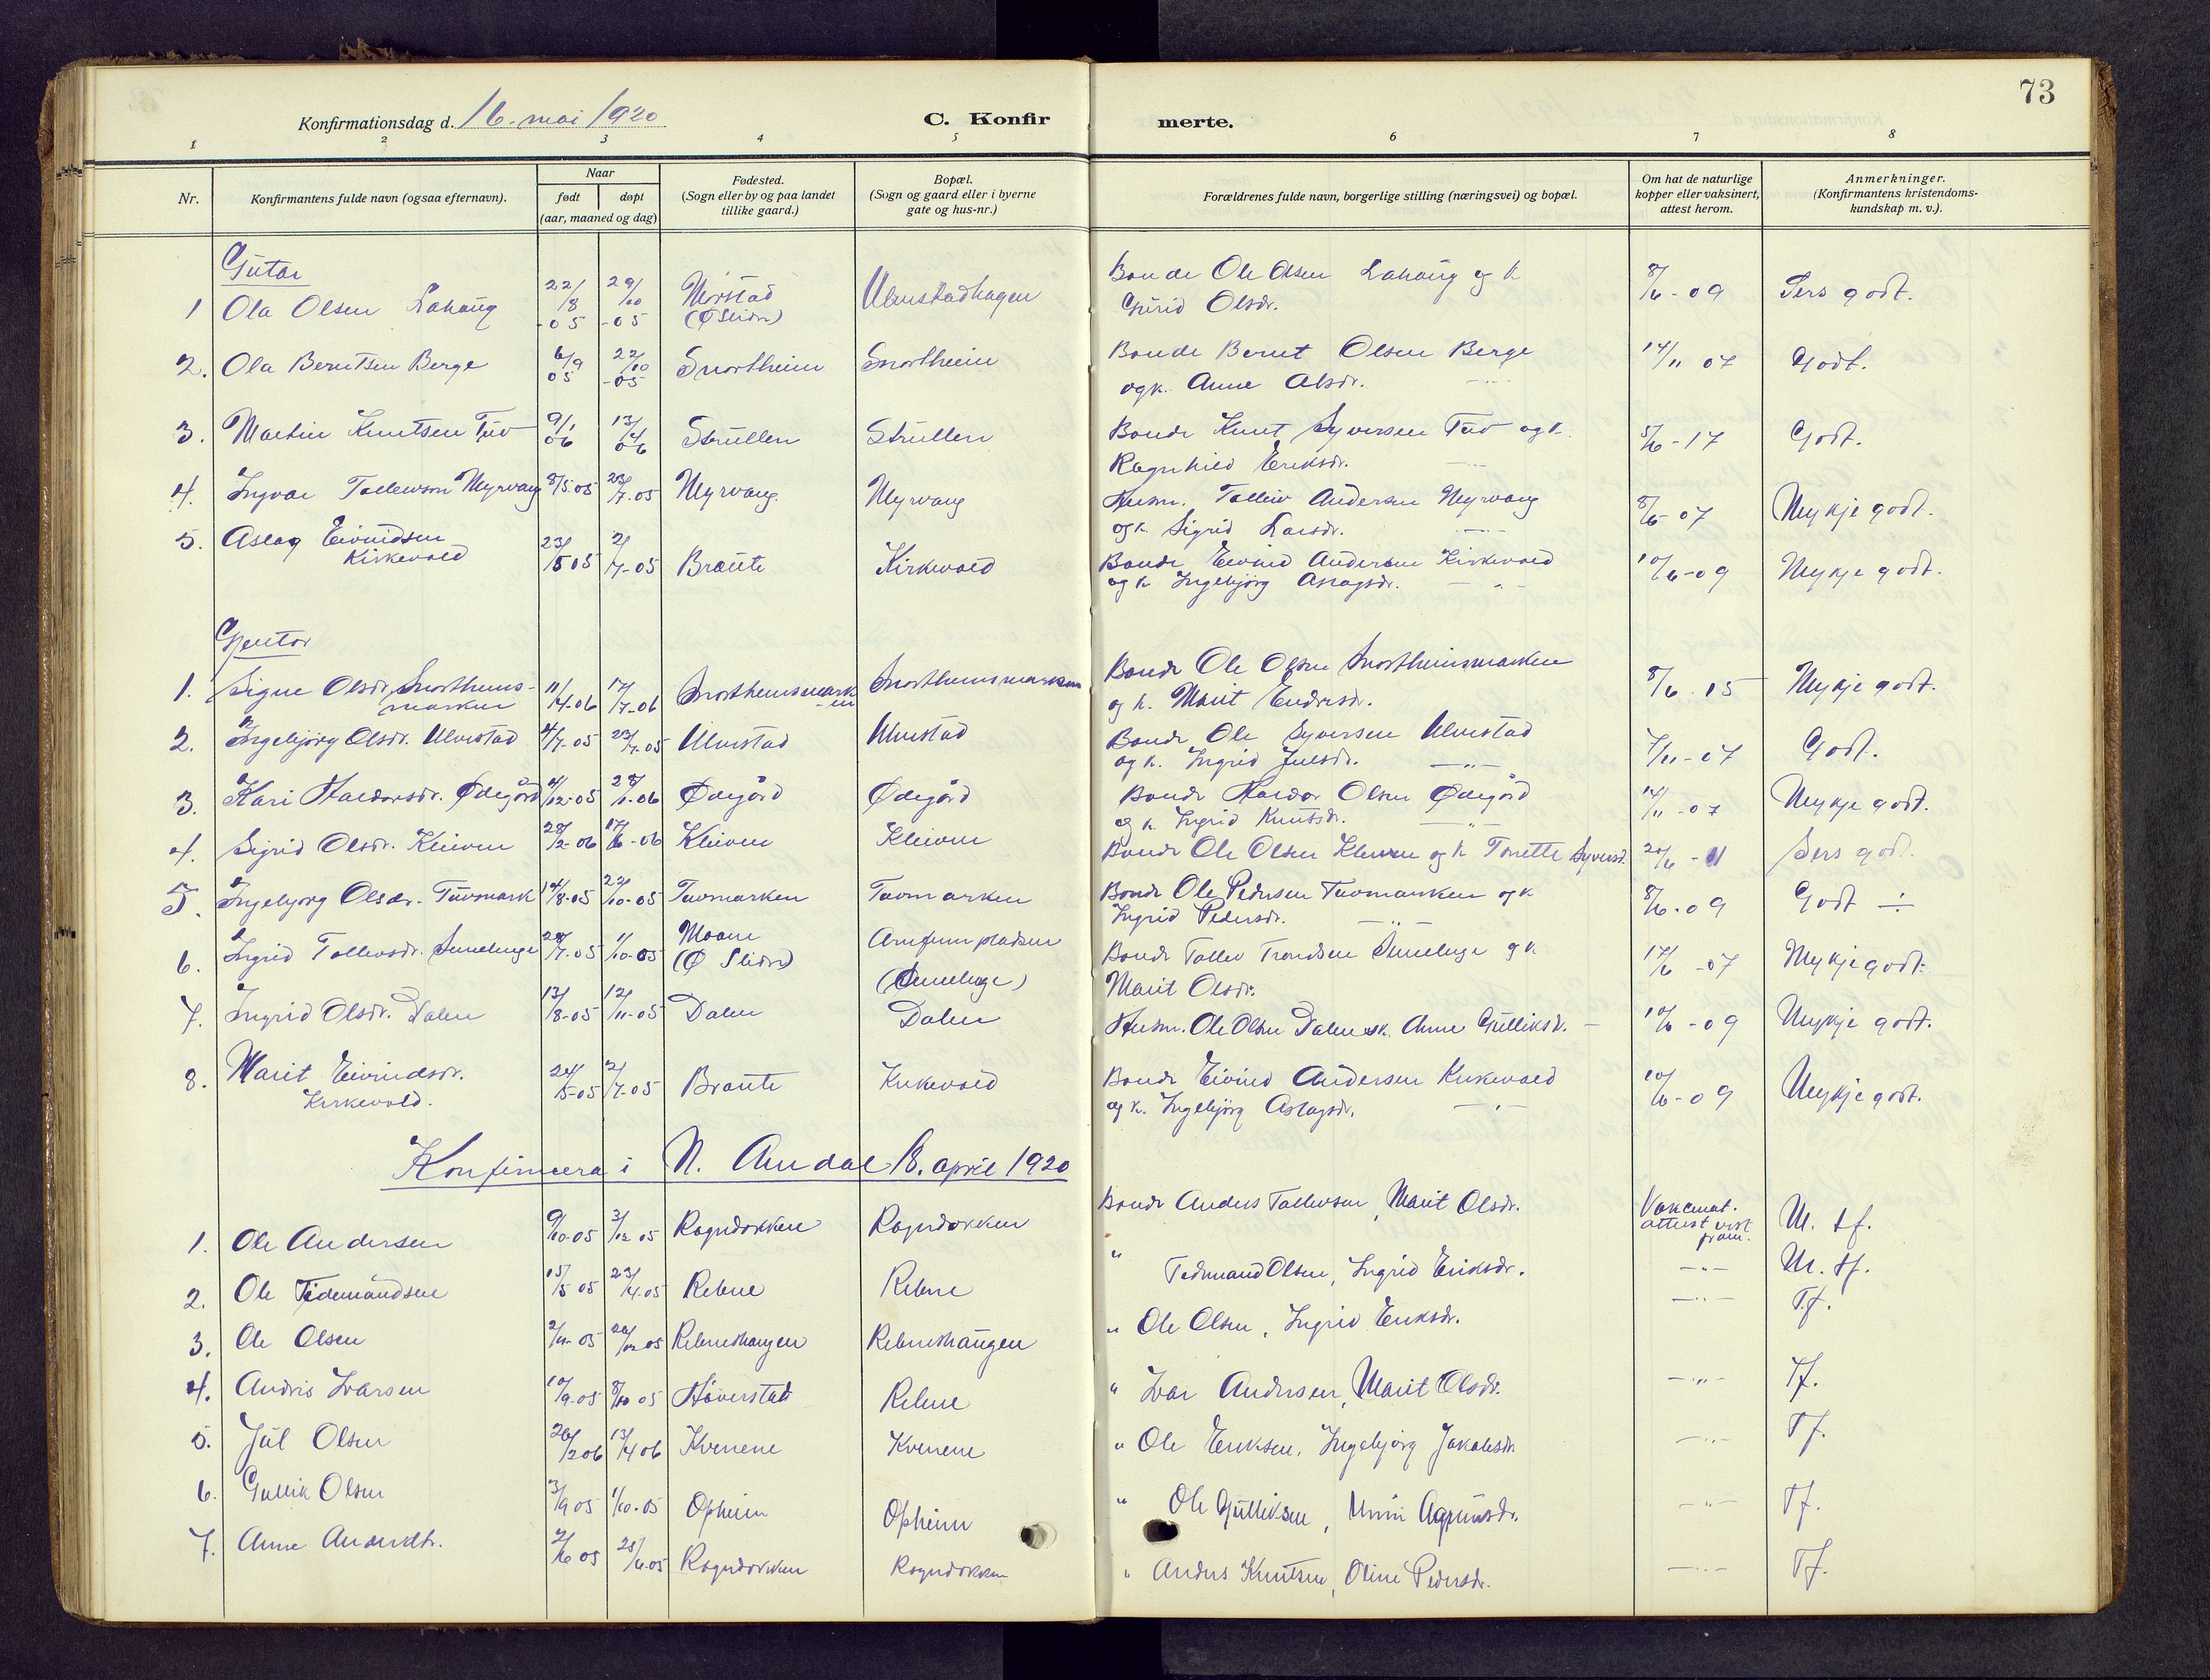 73
Konfirmationsdag d. 16. mai 1920
C. Konfirmerte.
1 2 3 4 5 6 7 8
Nr.
Konfirmantens fulde navn (ogsaa efternavn).
Naar
født døpt
(aar, maaned og dag)
Fødested.
(Sogn eller by og paa landet
tillike gaard.)
Bopæl.
(Sogn og gaard eller i byerne
gate og hus-nr.)
Forældrenes fulde navn, borgerlige stilling (næringsvei) og bopæl.
Om hat de naturlige
kopper eller vaksinert,
attest herom.
Anmerkninger.
(Konfirmantens kristendoms-
kundskap m. v.).
Gutar
1 Ola Olsen Lahaug 22/8 -05 29/10 -05 (Ø Slidre) Ulvestadhagen Bonde Ole Olsen Lahaug og k 8/6-09 Sers godt.
Gurid Olsdr.
2. Ola Berntsen Berge 6/9 05 22/10 -05 Snortheim Snortheim Bonde Bernt Olsen Berge 14/11 07 Godt.
og k. Anne Olsdr. -"-
3. Martin Knutsen Tuv 9/1 06 13/4 06 Strullen Strullen Bonde Knut Syversen Tuv og k. 5/6-17 Godt.
Ragnhild Eriksdr. -"-
4. Ingvar Tollevson Myrvang 8/5.05 23/7.05 Myrvang Myrvang Husm. Tolleiv Andersen Myrvang 8/6-07 Mykje godt.
og k. Sigrid Larsdr. -"-
5. Aslag Eivindsen
Kirkevold 23/5 05 2/7-05 Braute Kirkevold Bonde Eivind Andersen Kirkevold 10/6-09 Mykje godt.
og k Ingebjörg Aslagsdr. -"-
Gjentor
1. Signe Olsdr. Snortheims-
marken 11/4-06 17/7-06 Snortheimsmark
-en Snortheimsmarken Bonde Ole Olsen Snortheimsmarken 8/6.15 Mykje godt.
og k. Marit Endresdr.
2. Ingebjörg Olsdr. Ulvestad 4/7-05 23/7.05 Ulvestad Ulvestad Bonde Ole Syversen Ulvestad 7/11-07 Godt.
og k. Ingrid Julsdr. -"-
3. Kari Haldorsdr. Ødegård 4/12-05 28/1-06 Ødegård Ødegård Bonde Haldor Olsen Ødegård 14/11-07 Mykje godt.
og k. Ingrid Knutsdr. -"-
4. Sigrid Olsdr. Kleiven 28/2-06 17/6-06 Kleiven Kleiven Bonde Ole Olsen Kleiven og k Torette Syversd. 20/6-11 Sers godt.
5. Ingebjorg Olsdr. Tuvmark 14/8-05 22/10-05 Tuvmarken Tuvmarken Bonde Ole Pedersen Tuvmarken og k 8/6-09 Godt ÷
Ingrid Pedersdr. -"-
6. Ingrid Tollevsdr. 28/7.05 1/10-05 Moane
(Ø Slidre) Bonde Tollev Trondsen og k 17/6-07 Mykje godt.
Marit Olsdr.
7. Ingrid Olsdr. Dalen 13/8-05 12/11-05 Dalen Dalen Husm. Ole Olsen Dalen og k. Anne Gulliksd. - 10/6-09 Mykje godt.
8. Marit Eivindsdr.
Kirkevold. 24/5-05 2/7-05 Braute Kirkevold Bonde Eivind Andersen Kirkevold 10/6-09 Mykje godt.
og k. Ingebjörg Aslagsdr. -"-
Konfirmera i N. Aurdal 18. april 1920
1. Ole Andersen 9/10-05 3/12 05 Rogndokken Rogndokken Bonde Anders Tollevsen, Marit Olsdr. Vaksinat.
attest vist
fram. M. tf.
2. Ole Tidemandsen 15/5 05 23/4.05 Rebne Rebne " Tidemand Olsen, Ingrid Eriksdr. -"- M. tf.
3. Ole Olsen 2/11-05 Rebneshaugen Rebneshaugen " Ole Olsen, Ingrid Eriksdr. -"- T.f.
4. Andris Ivarsen 10/9-05 8/10 05 Höverstad Rebne " Ivar Andersen, Marit Olsdr. -"- Tf.
5. Jul Olsen 26/2 06 13/4 06 Kvenene Kvenene " Ole Eriksen, Ingebjörg Jakobsdr. -"- Tf.
6. Gullik Olsen 3/9 05 1/10-05 Opheim Opheim " Ole Gulliksen, -"- Tf.
7. Anne Andersdtr. 2/6 05 25/6-05 Rogndokken Rogndokken " Anders Knutsen, Oline Pedersdr. -"- Tf.